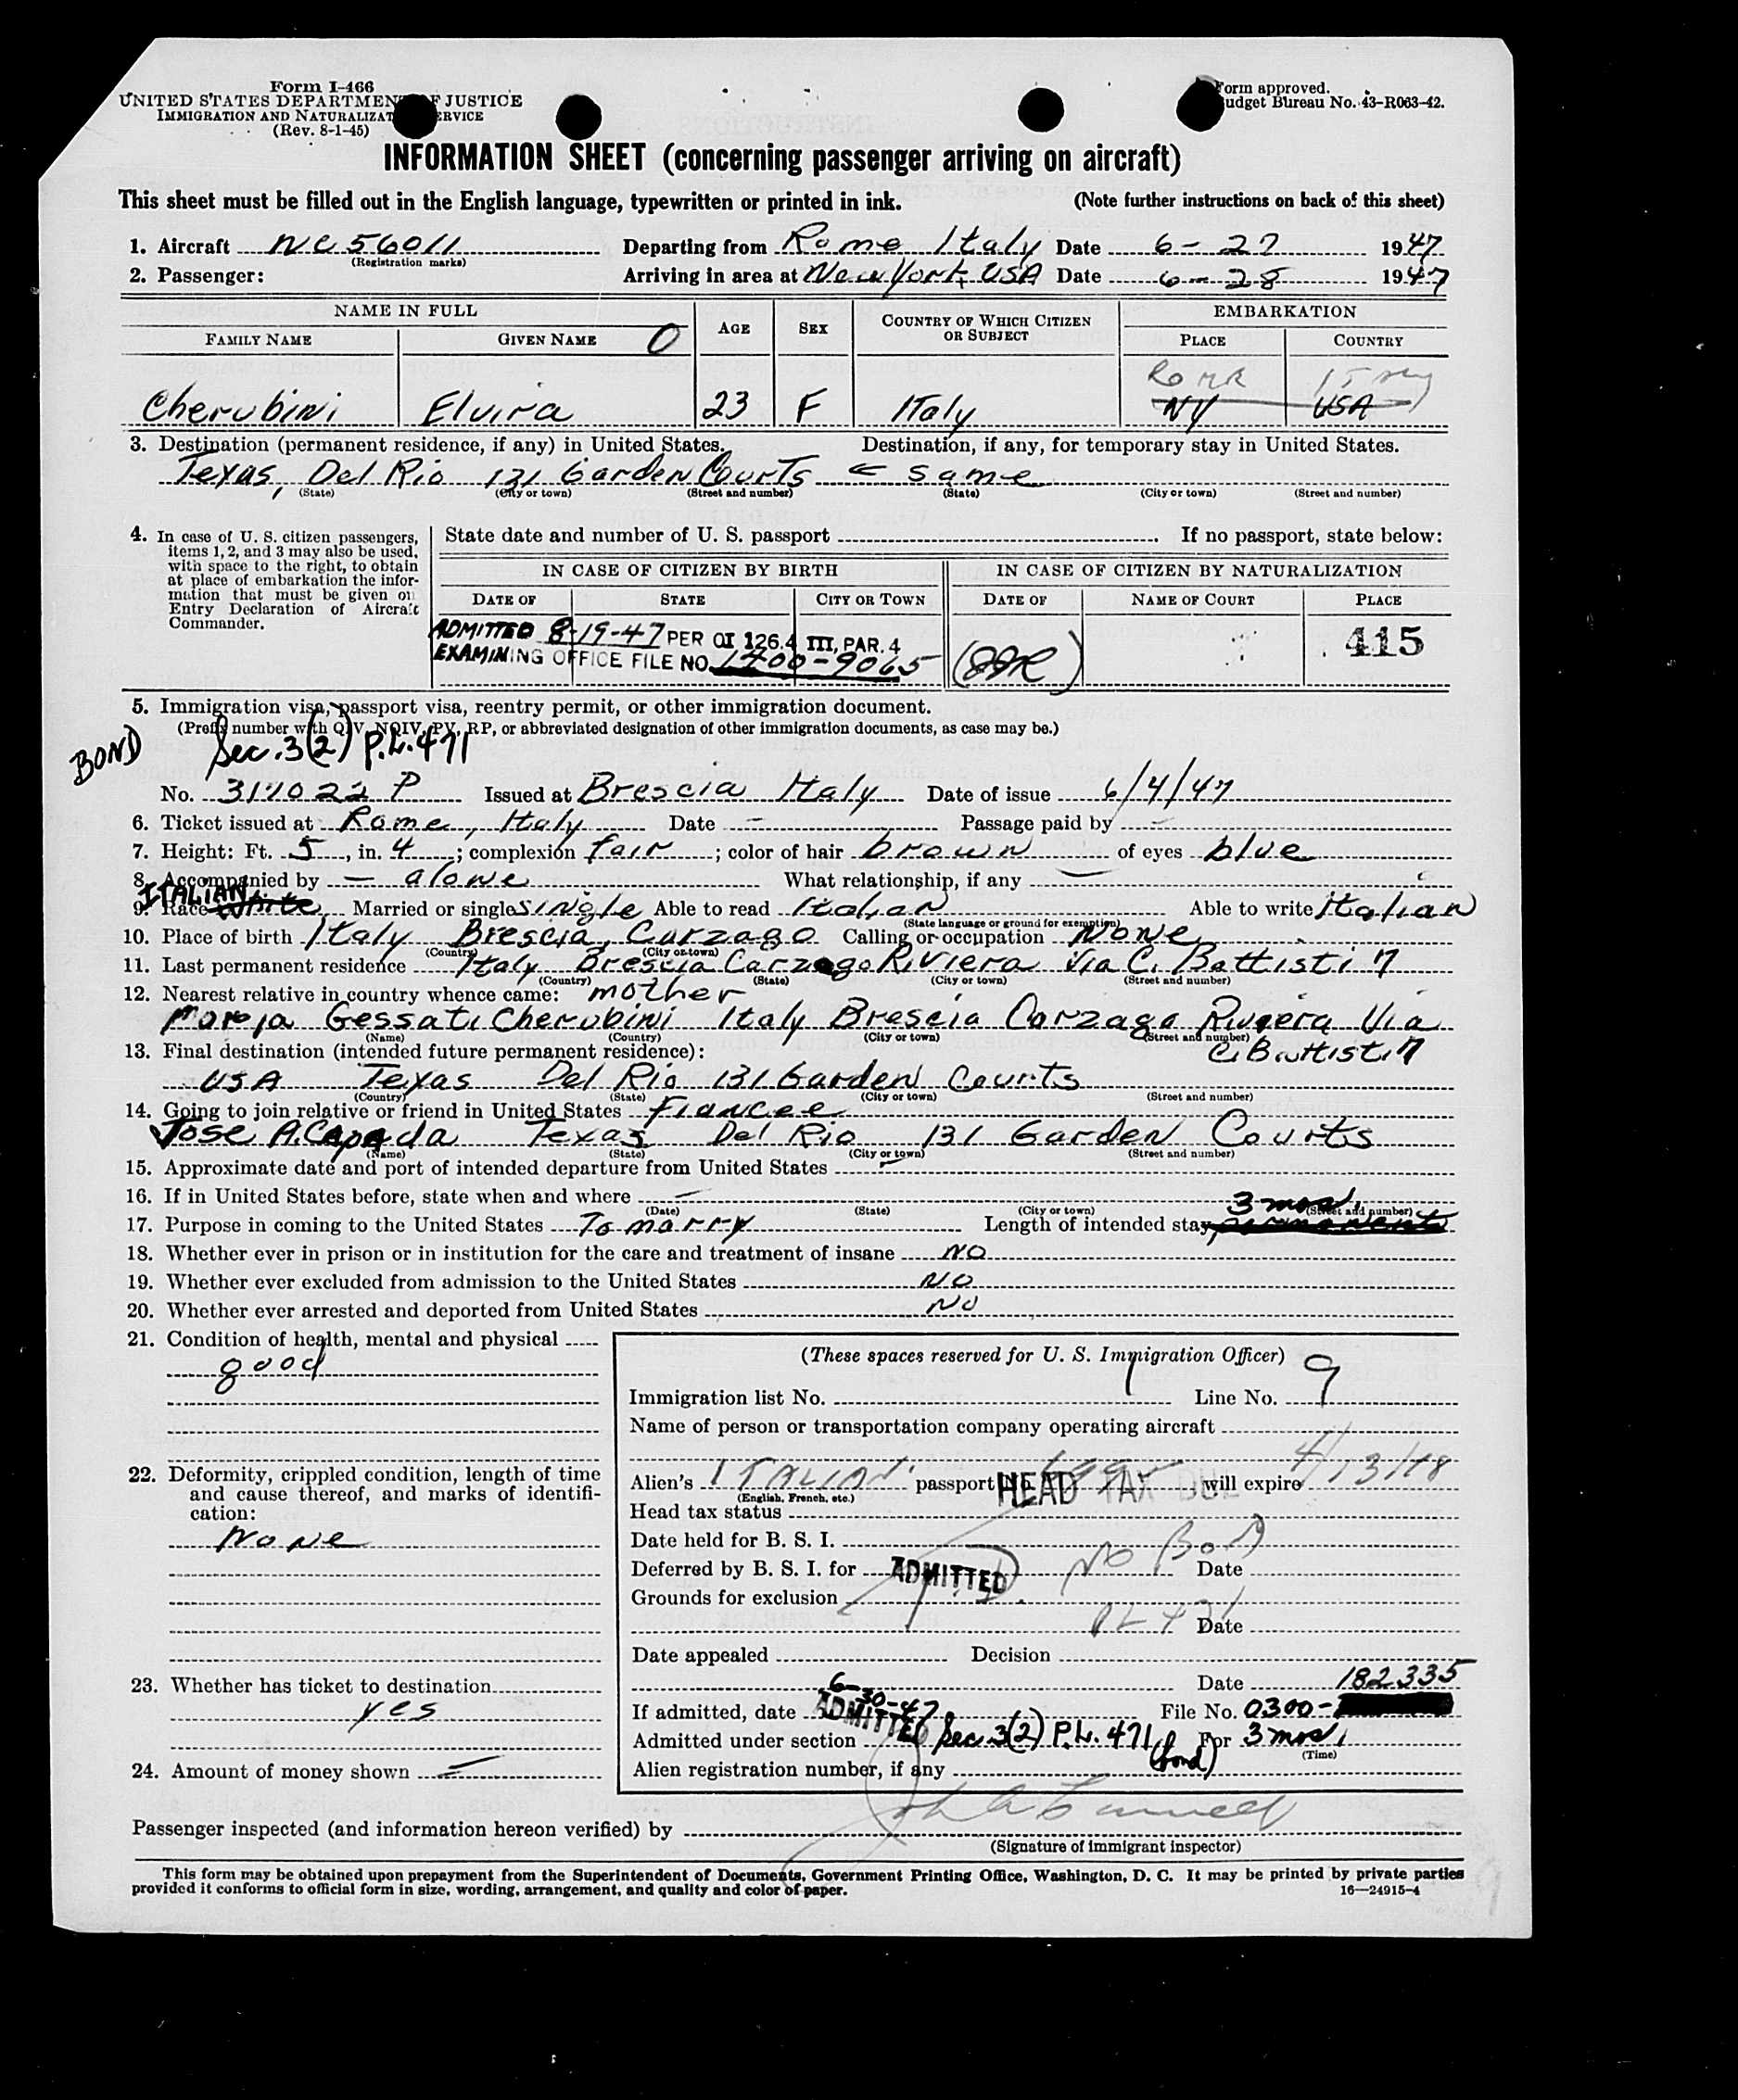 Form I-466
UNITED STATES DEPARTMENT OF JUSTICE
IMMIGRATION AND NATURALIZATION SERVICE
(Rev. 8-1-45)
Form approved.
Budget Bureau No. 43-R063-42.
INFORMATION SHEET (concerning passenger arriving on aircraft)
This sheet must be filled out in the English language, typewritten or printed in ink. (Note further instructions on back of this sheet)
1. Aircraft NC56011 Departing from Rome Italy Date 6-27 1947
(Registration marks)
2. Passenger: Arriving in area at New York, USA Date 6-28 1947
NAME IN FULL AGE SEX COUNTRY OF WHICH CITIZEN OR SUBJECT EMBARKATION
FAMILY NAME GIVEN NAME 0 PLACE COUNTRY
Rome Italy
Cherubini Elvira 23 F Italy NY USA
3. Destination (permanent residence, if any) in United States. Destination, if any, for temporary stay in United States.
Texas, Del Rio 131 Garden Courts same
(State) (City or town) (Street and number) (State) (City or town) (Street and number)
4. In case of U. S. citizen passengers, items 1, 2, and 3 may also be used, with space to the right, to obtain at place of embarkation the information that must be given on Entry Declaration of Aircraft Commander.
State date and number of U. S. passport If no passport, state below:
IN CASE OF CITIZEN BY BIRTH IN CASE OF CITIZEN BY NATURALIZATION
DATE OF STATE CITY OR TOWN DATE OF NAME OF COURT PLACE
ADMITTED 8-19-47 PER OI 126.4 III, PAR. 4 415
EXAMINING OFFICE FILE NO. 1400-9065
5. Immigration visa, passport visa, reentry permit, or other immigration document.
(Prefix number with QIV, NQIV, PV, RP, or abbreviated designation of other immigration documents, as case may be.)
BOND Sec. 3(2) P.L. 471
No. 317022 P Issued at Brescia Italy Date of issue 6/4/47
6. Ticket issued at Rome, Italy Date - Passage paid by -
7. Height: Ft. 5, in. 4; complexion fair; color of hair brown of eyes blue
8. Accompanied by - alone What relationship, if any -
ITALIAN
9. Race White Married or single single Able to read Italian Able to write Italian
(State language or ground for exemption)
10. Place of birth Italy Brescia, Carzago Calling or occupation None
(Country) (City or town)
11. Last permanent residence Italy Brescia Carzago Riviera Via C. Battisti 7
(Country) (State) (City or town) (Street and number)
12. Nearest relative in country whence came: mother
Gessati Cherubini Italy Brescia Carzago Riviera Via
(Name) (Country) (City or town) (Street and number)
C. Battisti 7
13. Final destination (intended future permanent residence):
USA Texas Del Rio 131 Garden Courts
(Country) (State) (City or town) (Street and number)
14. Going to join relative or friend in United States Fiancee
Jose A. Texas Del Rio 131 Garden Courts
(Name) (State) (City or town) (Street and number)
15. Approximate date and port of intended departure from United States -
16. If in United States before, state when and where -
(Date) (State) (City or town) (Street and number)
3 mos.
17. Purpose in coming to the United States To marry Length of intended stay
18. Whether ever in prison or in institution for the care and treatment of insane NO
19. Whether ever excluded from admission to the United States NO
20. Whether ever arrested and deported from United States NO
21. Condition of health, mental and physical
good
22. Deformity, crippled condition, length of time and cause thereof, and marks of identification:
None
23. Whether has ticket to destination
yes
24. Amount of money shown -
(These spaces reserved for U. S. Immigration Officer)
Immigration list No. 1 Line No. 9
Name of person or transportation company operating aircraft
Alien's ITALIAN passport No. will expire 4/13/48
(English, French, etc.)
HEAD TAX DUE
Head tax status
Date held for B. S. I.
Deferred by B. S. I. for ADMITTED No Bond Date
Grounds for exclusion
PL 471 Date
Date appealed Decision
Date 182335
If admitted, date 6-30-47 File No. 0300-
ADMITTED
Admitted under section Sec. 3(2) P.L. 471 (bond) For 3 mos.
(Time)
Alien registration number, if any
Passenger inspected (and information hereon verified) by
(Signature of immigrant inspector)
This form may be obtained upon prepayment from the Superintendent of Documents, Government Printing Office, Washington, D. C. It may be printed by private parties
provided it conforms to official form in size, wording, arrangement, and quality and color of paper. 16—24915-4